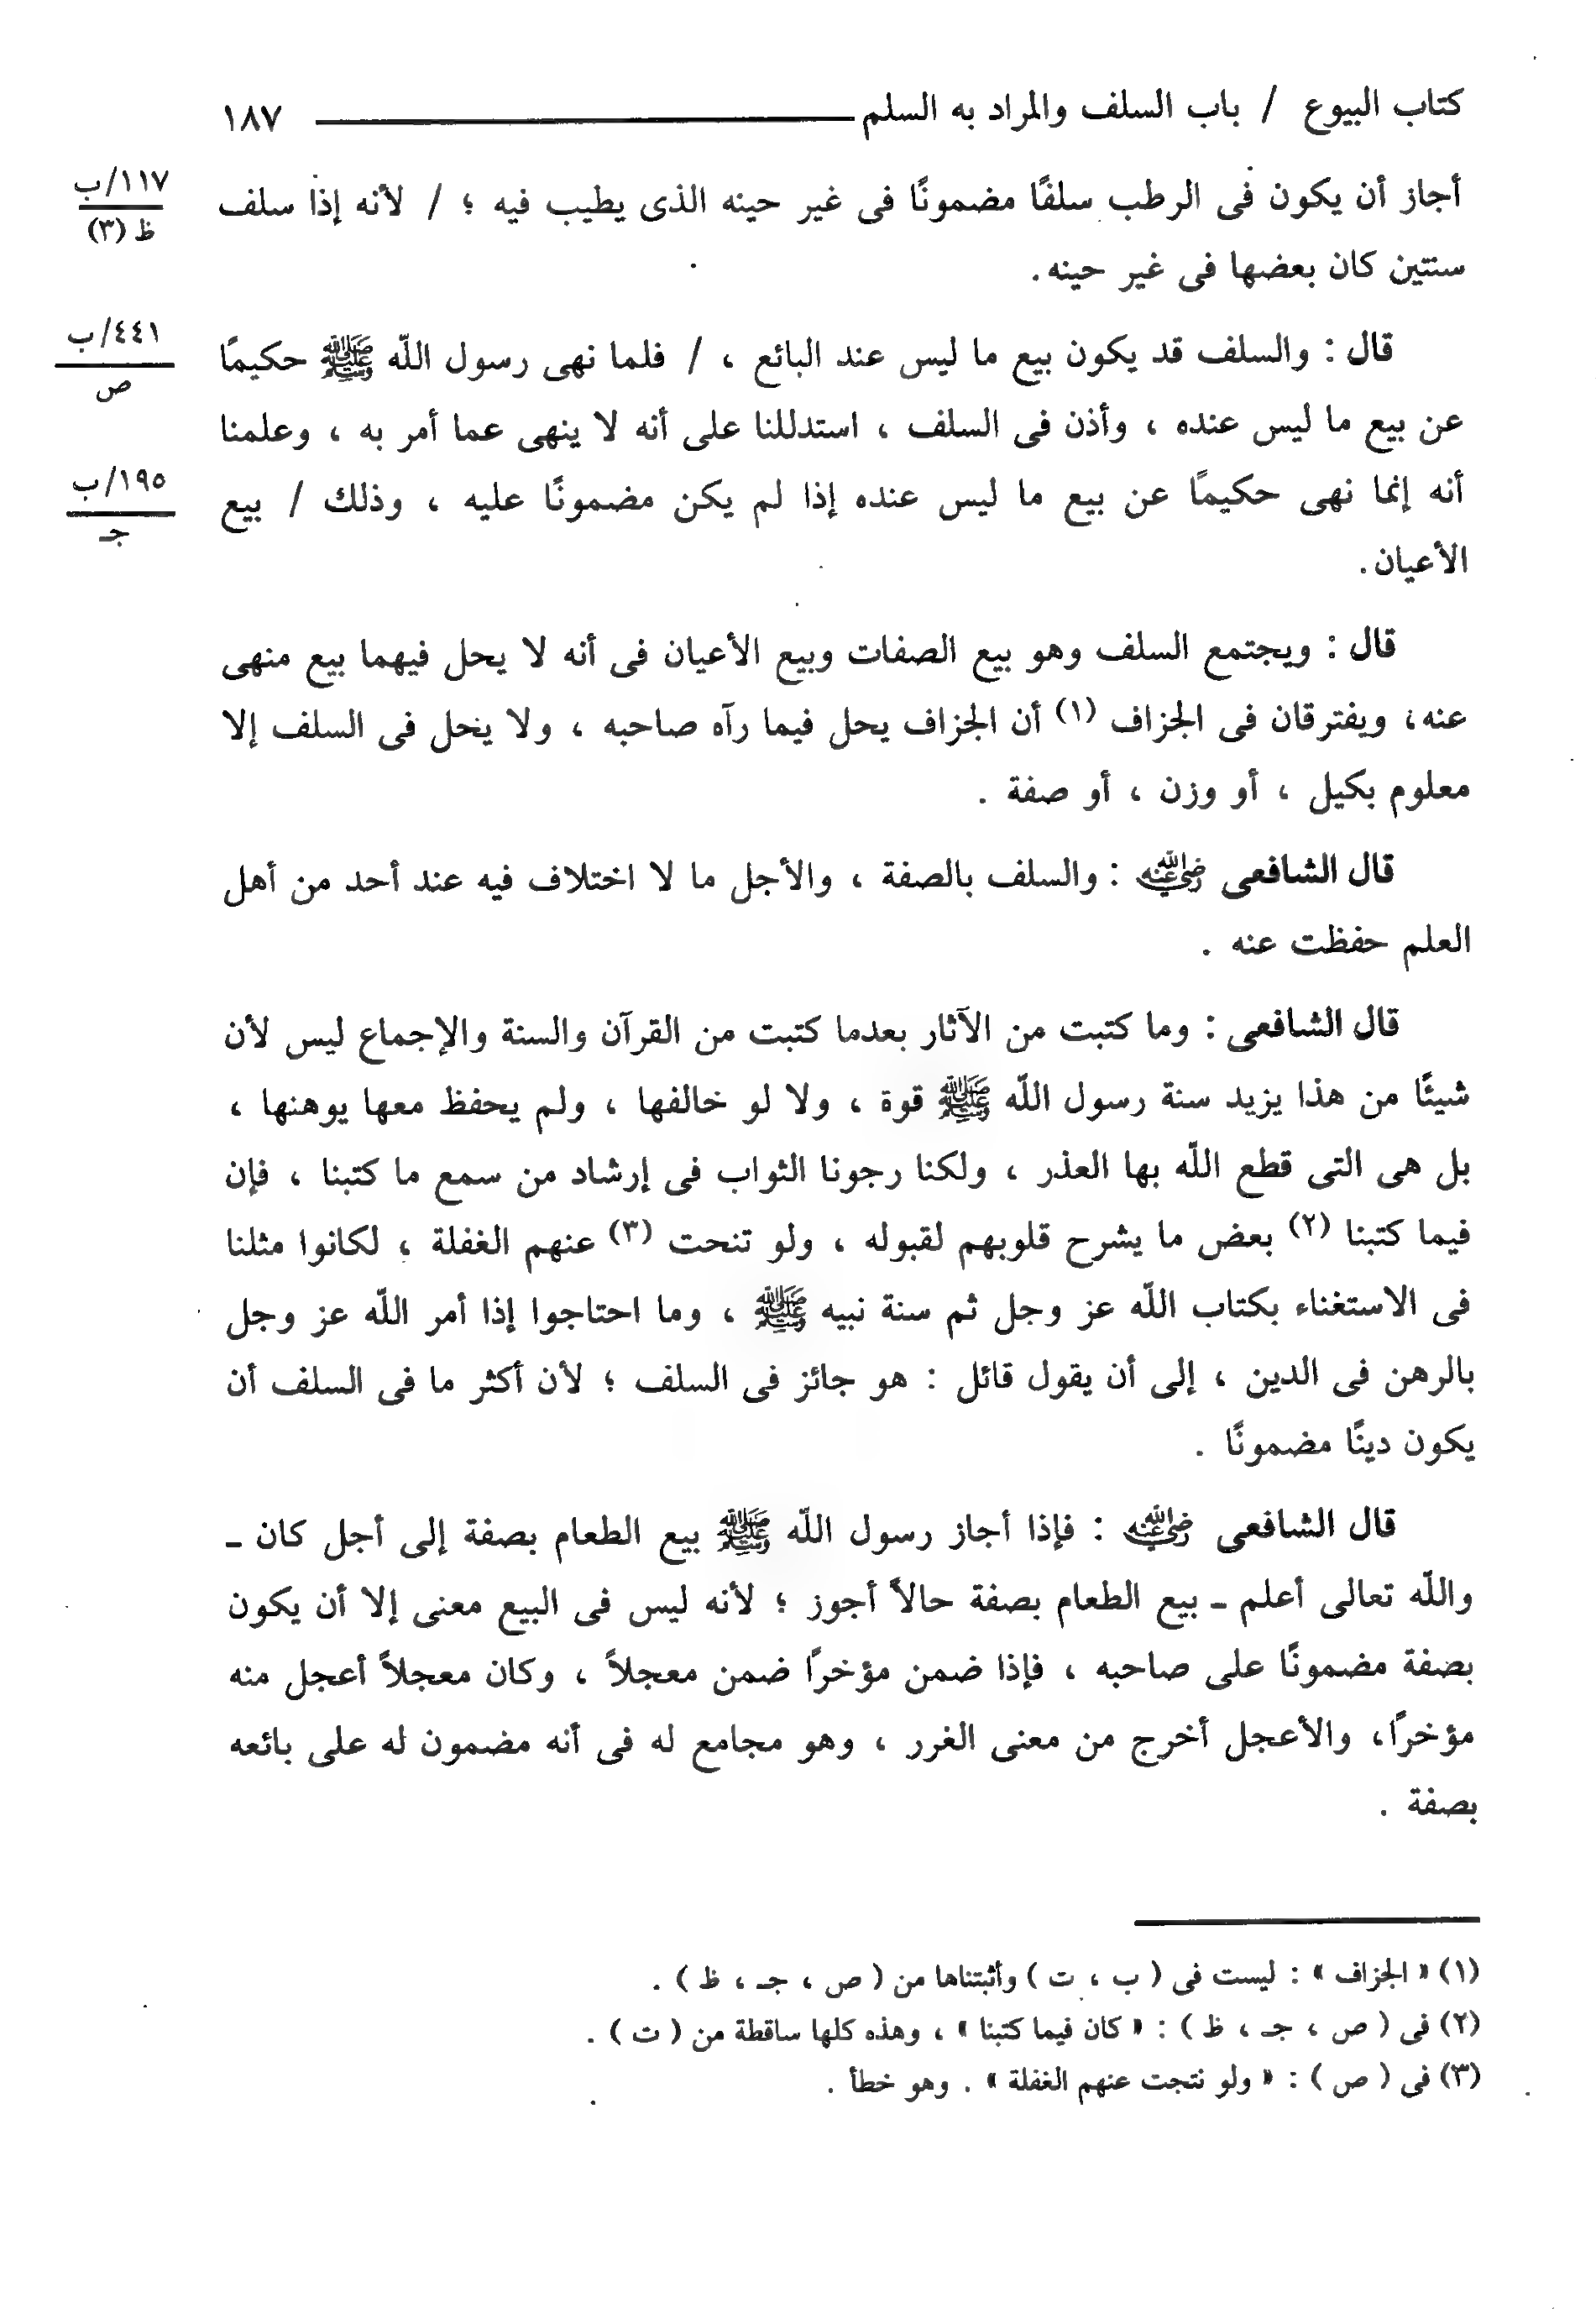 كتاب البيوع / باب السلف والمراد به السلم ١٨٧
أجاز أن يكون فى الرطب سلفًا مضمونًا فى غير حينه الذى يطيب فيه ؛ / لأنه إذا سلف
١١٧/ب
ظ (٣)
سنتين كان بعضها فى غير حينه.
قال : والسلف قد يكون بيع ما ليس عند البائع ، / فلما نهى رسول اللّه ﷺ حكيمًا
٤٤١/ب
ص
عن بيع ما ليس عنده ، وأذن فى السلف ، استدللنا على أنه لا ينهى عما أمر به ، وعلمنا
أنه إنما نهى حكيمًا عن بيع ما ليس عنده إذا لم يكن مضمونًا عليه ، وذلك / بيع
١٩٥/ب
جـ
الأعيان.
قال : ويجتمع السلف وهو بيع الصفات وبيع الأعيان فى أنه لا يحل فيهما بيع منهى
عنه، ويفترقان فى الجزاف (١) أن الجزاف يحل فيما رآه صاحبه ، ولا يحل فى السلف إلا
معلوم بكيل ، أو وزن ، أو صفة .
قال الشافعى رضي الله عنه : والسلف بالصفة ، والأجل ما لا اختلاف فيه عند أحد من أهل
العلم حفظت عنه .
قال الشافعى : وما كتبت من الآثار بعدما كتبت من القرآن والسنة والإجماع ليس لأن
شيئًا من هذا يزيد سنة رسول اللّه ﷺ قوة ، ولا لو خالفها ، ولم يحفظ معها يوهنها ،
بل هى التى قطع اللّه بها العذر ، ولكنا رجونا الثواب فى إرشاد من سمع ما كتبنا ، فإن
فيما كتبنا (٢) بعض ما يشرح قلوبهم لقبوله ، ولو تنحت (٣) عنهم الغفلة ، لكانوا مثلنا
فى الاستغناء بكتاب اللّه عز وجل ثم سنة نبيه ﷺ ، وما احتاجوا إذا أمر اللّه عز وجل
بالرهن فى الدين ، إلى أن يقول قائل : هو جائز فى السلف ؛ لأن أكثر ما فى السلف أن
يكون دينًا مضمونًا .
قال الشافعى رضي الله عنه : فإذا أجاز رسول اللّه ﷺ بيع الطعام بصفة إلى أجل كان ـ
واللّه تعالى أعلم ـ بيع الطعام بصفة حالاً أجوز ؛ لأنه ليس فى البيع معنى إلا أن يكون
بصفة مضمونًا على صاحبه ، فإذا ضمن مؤخرًا ضمن معجلاً ، وكان معجلاً أعجل منه
مؤخرًا، والأعجل أخرج من معنى الغرر ، وهو مجامع له فى أنه مضمون له على بائعه
بصفة .
(١) « الجزاف » : ليست فى ( ب ، ت ) وأثبتناها من ( ص ، جـ ، ظ ) .
(٢) فى ( ص ، جـ ، ظ ) : « كان فيما كتبنا » ، وهذه كلها ساقطة من ( ت ) .
(٣) فى ( ص ) : « ولو نتجت عنهم الغفلة » . وهو خطأ .